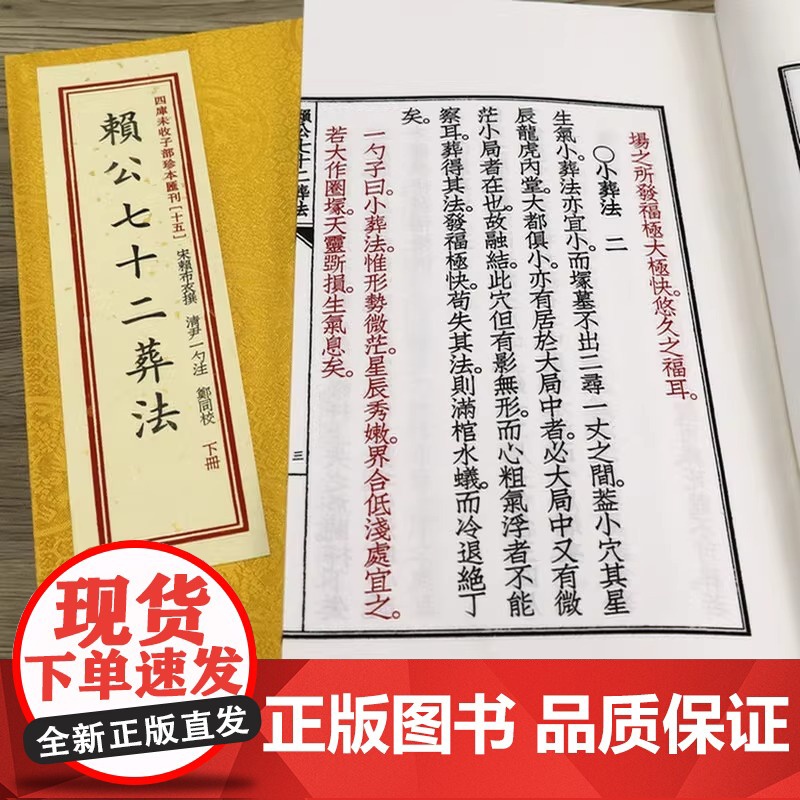 四庫未收子部珍本匯刊[十五]
宋賴布衣撰 清尹一勺注 鄭同校
賴公七十二葬法
下冊
場之所發福極大極快。悠久之福耳。
〇小葬法 二
生氣小。葬法亦宜小。而塚墓不出二尋一丈之間。葢小穴其星
辰龍虎內堂。大都俱小。亦有居於大局中者。必大局中又有微
茫小局者在也。故融結此穴。但有影無形。而心粗氣浮者不能
察耳。葬得其法。發福極快。茍失其法。則滿棺水蟻。而冷退絕丁
矣。
一勺子曰。小葬法惟形勢微茫。星辰秀嫩。界合低淺處宜之。
若大作圈塚。天靈斲損。生氣息矣。
賴公七十二葬法
三
现货
全新正版直发
正版图书 品质保证